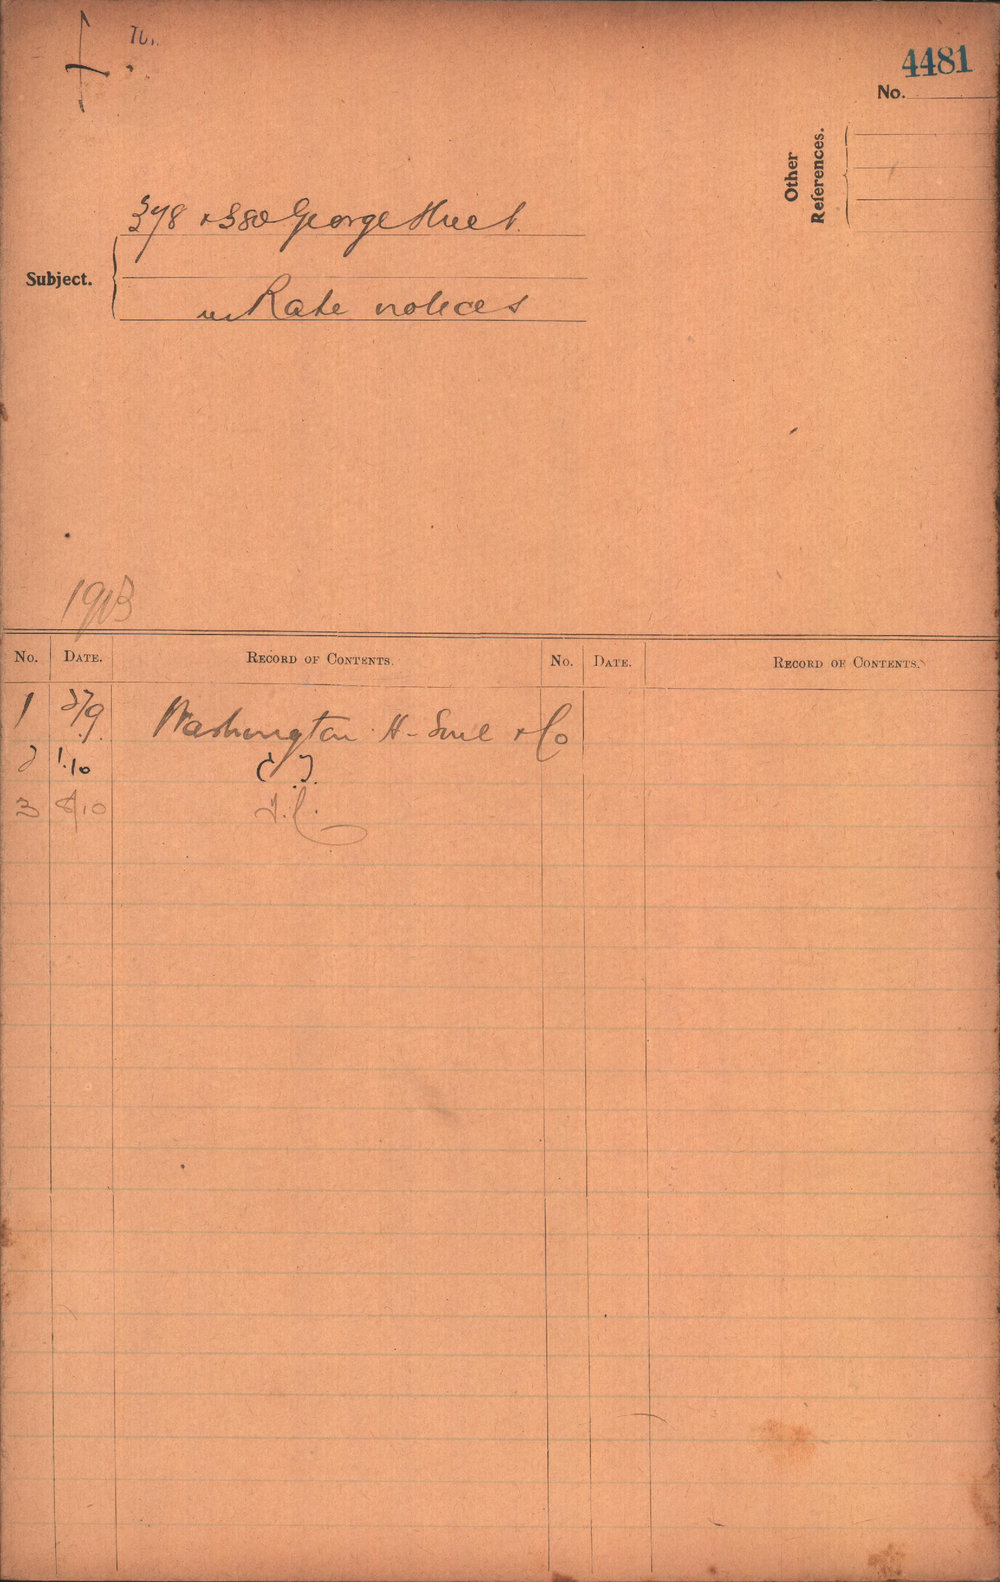 4481
No.
Other
References.
378 & 380 George Street.
Subject.
Rate notices
1903
No. DATE. RECORD OF CONTENTS. No. DATE. RECORD OF CONTENTS.
1 27/9 Washington H. Soul & Co
2 1.10
3 8/10